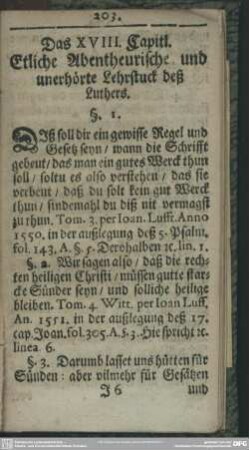 203.
Das XVIII. Capitl.
Etliche Abentheurische und
unerhörte Lehrstuck deß
Luthers.
§. 1.
DIß soll dir ein gewisse Regel und
Gesetz seyn / wann die Schrifft
gebeut / das man ein gutes Werck thun
soll / soltu es also verstehen / das sie
verbeut / daß du solt kein gut Werck
thun / sindemahl du diß nit vermagst
zu thun. Tom. 3. per Ioan. Lufft. Anno
1550. in der außlegung deß 5. Psalm.
fol. 143. A. §. 5. Derohalben ꝛc. lin. 1.
§. 2. Wir sagen also / daß die rech-
ten heiligen Christi / müssen gutte star-
cke Sünder seyn / und solliche heilige
bleiben. Tom. 4. Witt. per Ioan Luff.
An. 1551. in der außlegung deß 17.
cap. Joan. fol. 305. A. §. 3. Hie spricht ꝛc.
linea 6.
§. 3. Darumb lasset uns hütten für
Sünden: aber vilmehr für Gesätzen
J 6 und